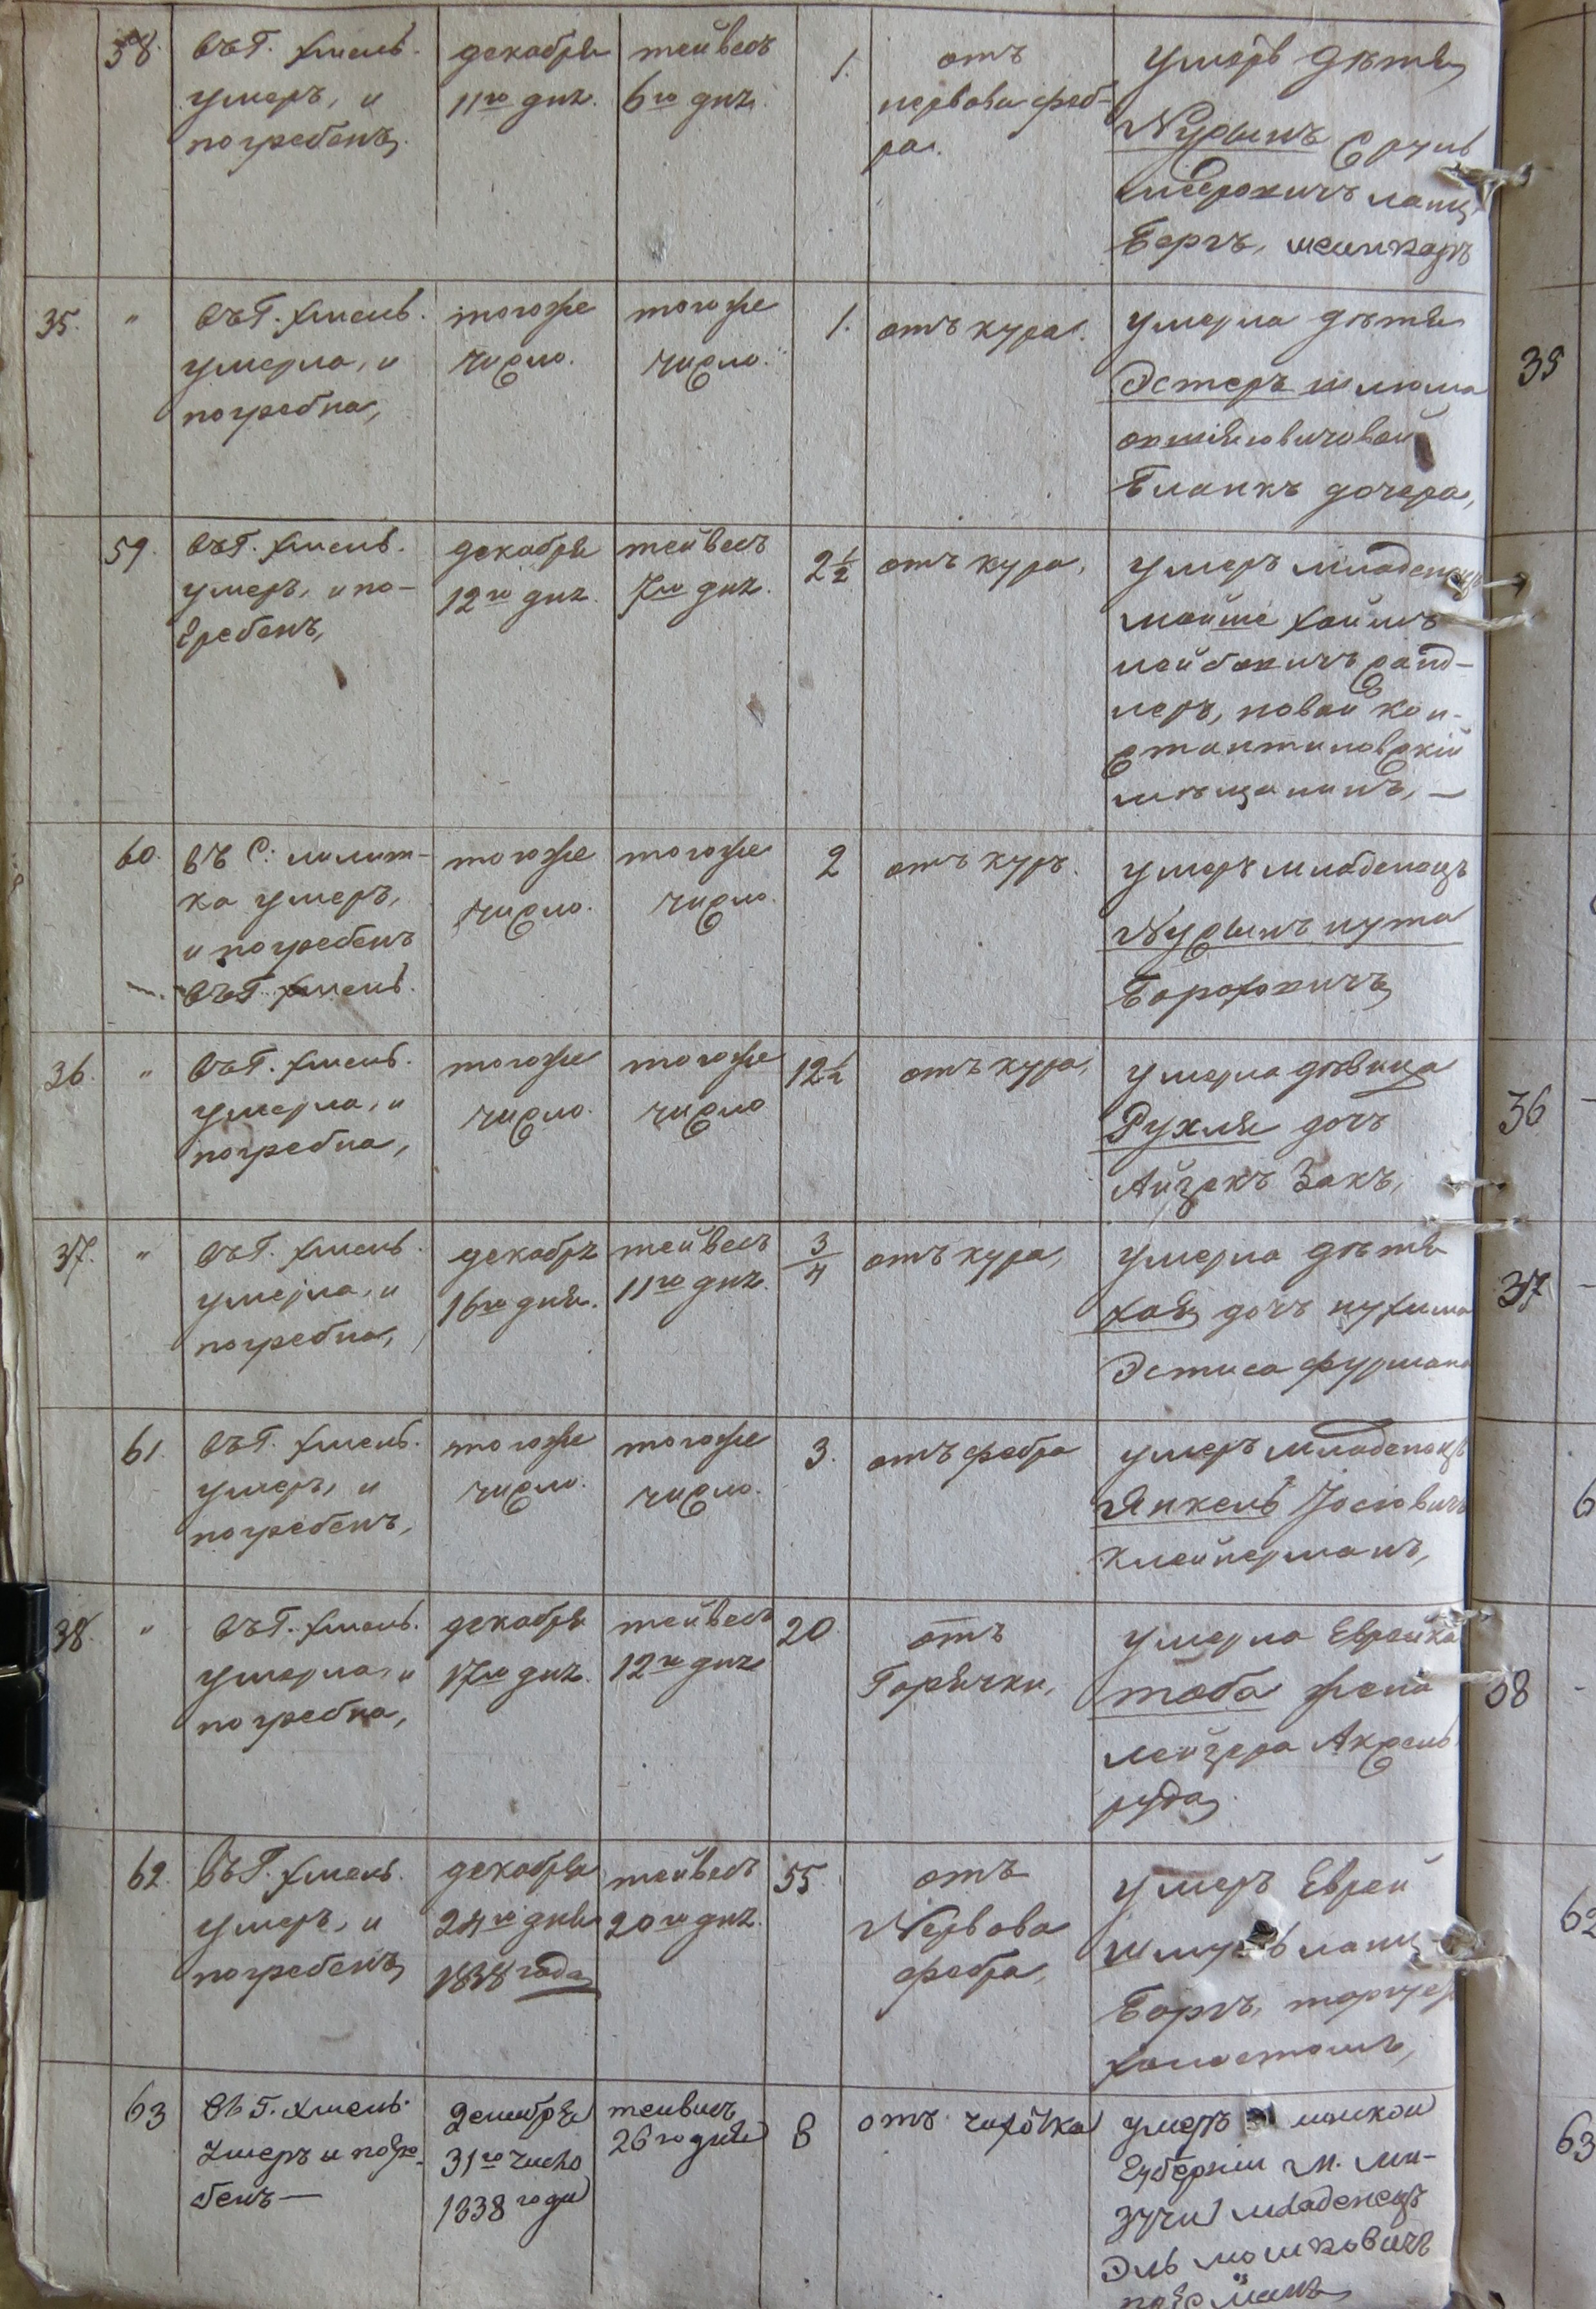 58.
въ Г. хмель.
умеръ, и
погребенъ.
декабря
11го днz.
тейвесъ
6го днz.
1.
отъ
нервови феб-
ра.
умеръ дѣтя
Нусынъ Сруль
Берковичъ ланц
Бергъ,
35.
"
въ Г. хмель.
умерла, и
погребна,
тогоже
число.
тогоже
число.
1.
отъ кура.
умерла дѣтя
Эстеръ шлюма
Бланкъ дочера,
35
59.
въ Г. хмель.
умеръ, и по-
гребенъ,
декабря
12го днz.
тейвесъ
7го днz.
2½
отъ кура,
умеръ младенецъ
мойше хаимъ
лейбовичъ санд-
леръ, новой кон-
стантиновскій
мѣщанинъ, —
60.
въ С:
ка умеръ,
и погребенъ
въ Г. хмель.
тогоже
число.
тогоже
число.
2
отъ куръ.
умеръ младенецъ
Нусынъ нута
Бороховичъ
36.
"
въ Г. хмель.
умерла, и
погребна,
тогоже
число.
тогоже
число
12½
отъ кура,
умерла дѣвица
Рухля дочъ
Айзекъ Закъ,
36
37.
"
въ Г. хмель.
умерла, и
погребна,
декабрz
16го дня.
тейвесъ
11го днz.
3/4
отъ кура,
умерла дѣтя
хая дочъ нухима
Эстиса фурмана
37
61.
въ Г. хмель.
умеръ, и
погребенъ,
тогоже
число.
тогоже
число.
3.
отъ фебра
умеръ младенецъ
Янкель Іосіовичъ
клейнерманъ,
38.
"
въ Г. хмель.
умерла, и
погребна,
декабря
17го днz.
тейвесъ
12го днz
20
отъ
Горячки,
умерла Еврейка
тоба жена
лейзера Аксель
рода
38
62.
въ Г. хмель.
умеръ, и
погребенъ
декабря
24го дня
1838 года
тейвесъ
20го днz.
55
отъ
Нервова
фебра,
умеръ Еврей
ланц-
Бергъ,
62
63
въ Г. хмель.
умеръ и погре-
бенъ —
31го число
1838 годи
тейвисъ
26го дня
8
отъ
умеръ
губерніи м. ми-
младенецъ
Эль мошковичъ
63